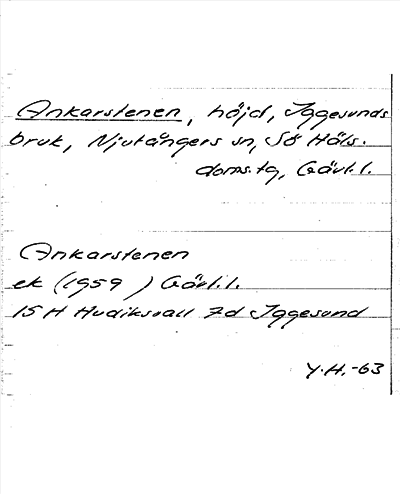 Ankarstenen, höjd, Iggesunds
bruk, Njutångers sn, Sö Häls.
doms.tg, Gävl.l.
Ankarstenen
ek (1959 ) Gävl.l.
15 H Hudiksvall 7d Iggesund
Y.H.-63